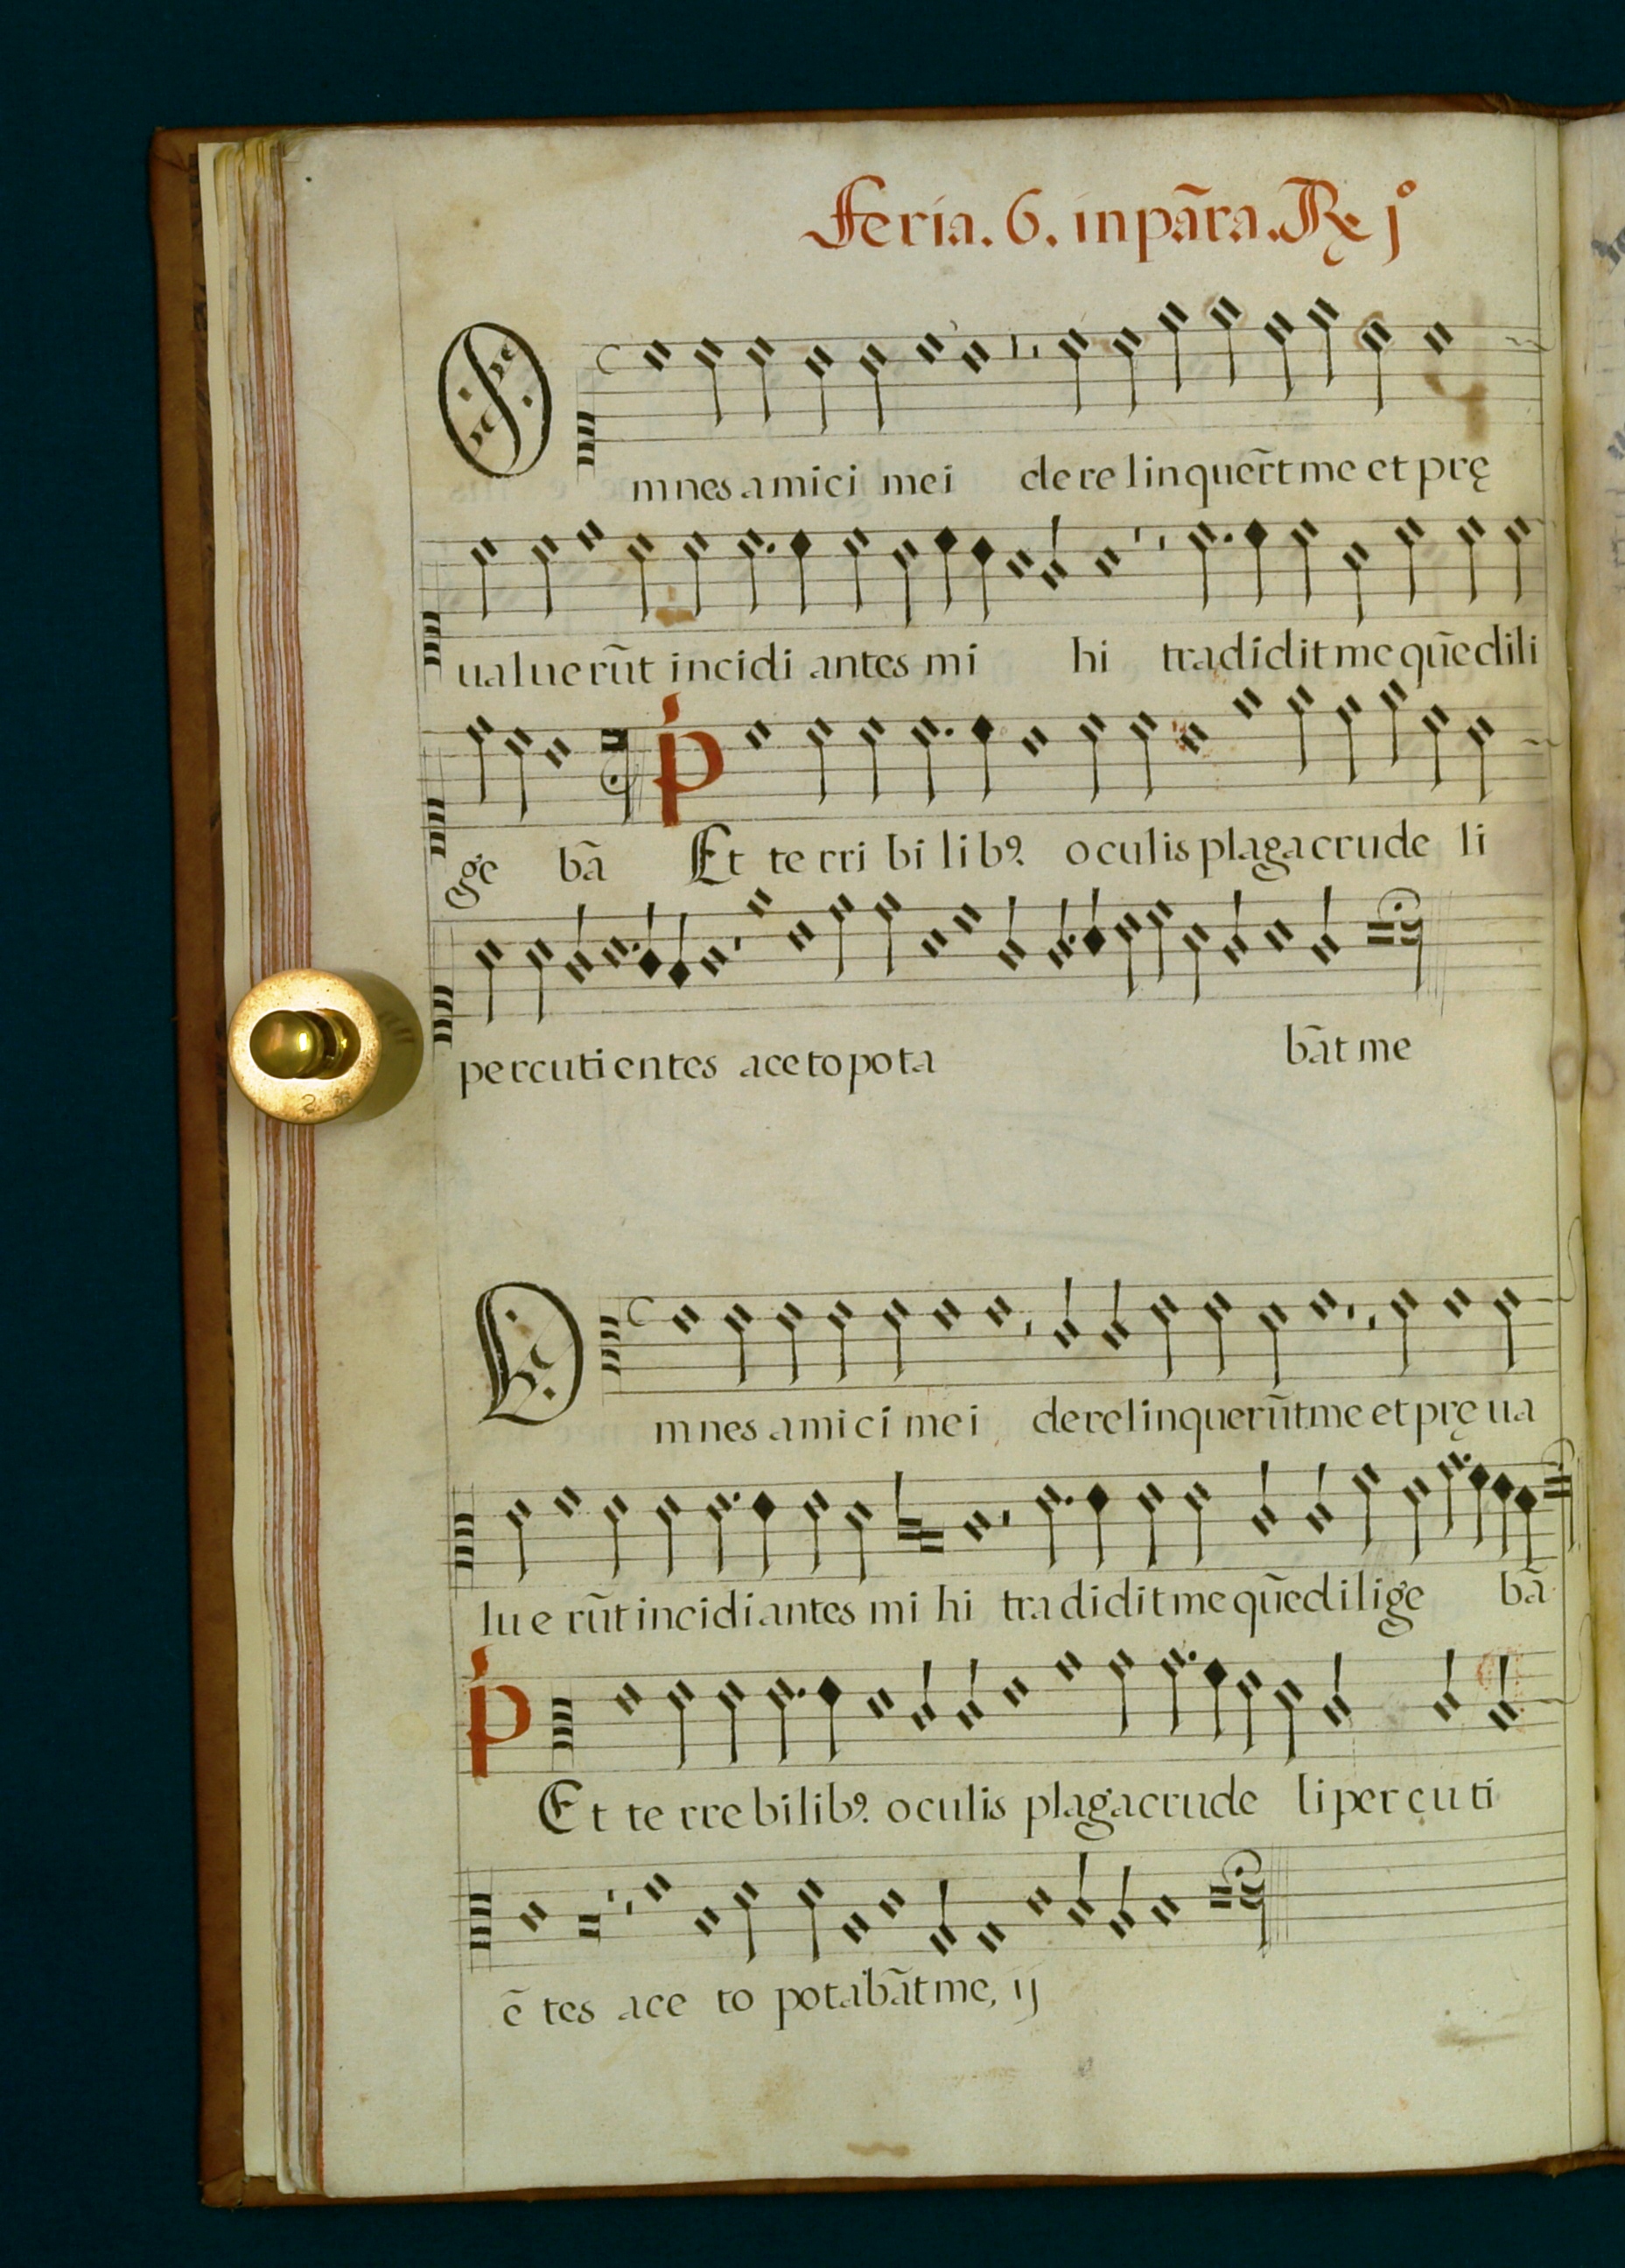 Feria. 6. in pãra. ℞ jº
Omnes amici mei derelinquer̃t me et prę
ualuerũt incidiantes mi hi tradidit me qũedili
ge bã Et terribilibꝰ. oculis plaga crude li
percutientes aceto pota bãt me
Omnes amici mei derelinquerũt me et prę ua
luerũt incidiantes mihi tradidit me qũedilige bã
Et terrebilibꝰ. oculis plaga crude li percuti
ẽtes aceto potabãt me, ij